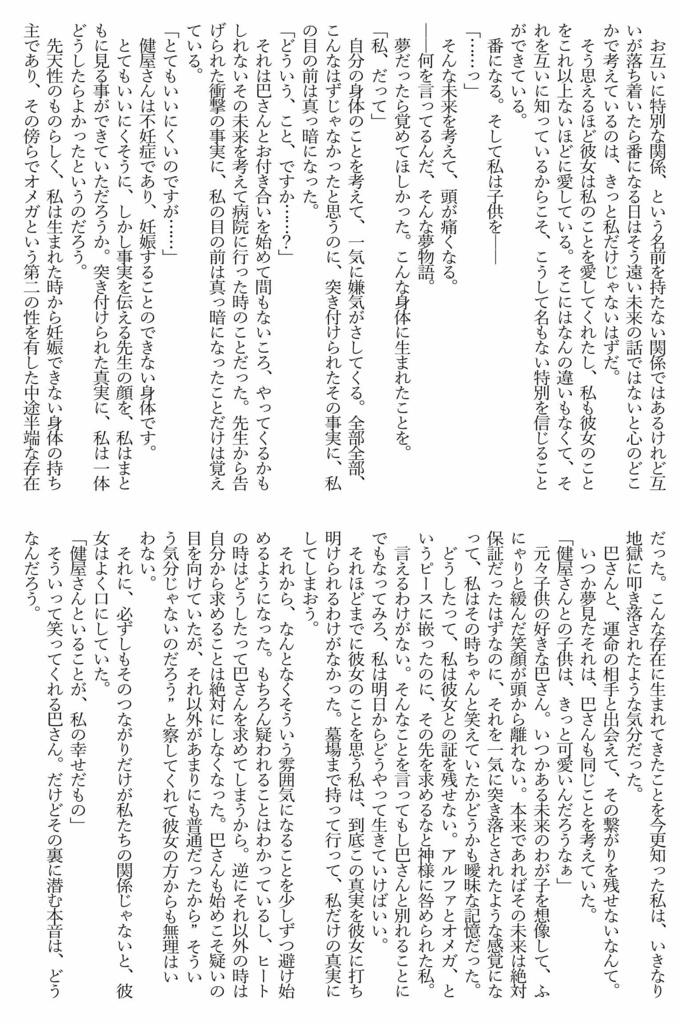 お互いに特別な関係、という名前を持たない関係ではあるけれど互
いが落ち着いたら番になる日はそう遠い未来の話ではないと心のどこ
かで考えているのは、きっと私だけじゃないはずだ。
　そう思えるほど彼女は私のことを愛してくれたし、私も彼女のこと
をこれ以上ないほどに愛している。そこにはなんの違いもなくて、そ
れを互いに知っているからこそ、こうして名もない特別を信じること
ができている。
　番になる。そして私は子供を――
「……っ」
　そんな未来を考えて、頭が痛くなる。
　――何を言ってるんだ、そんな夢物語。
　夢だったら覚めてほしかった。こんな身体に生まれたことを。
「私、だって」
　自分の身体のことを考えて、一気に嫌気がさしてくる。全部全部、
こんなはずじゃなかったと思うのに、突き付けられたその事実に、私
の目の前は真っ暗になった。
「どういう、こと、ですか……？」
　それは巴さんとお付き合いを始めて間もないころ、やってくるかも
しれないその未来を考えて病院に行った時のことだった。先生から告
げられた衝撃の事実に、私の目の前は真っ暗になったことだけは覚え
ている。
「とてもいいにくいのですが……」
　健屋さんは不妊症であり、妊娠することのできない身体です。
　とてもいいにくそうに、しかし事実を伝える先生の顔を、私はまと
もに見る事ができていただろうか。突き付けられた真実に、私は一体
どうしたらよかったというのだろう。
　先天性のものらしく、私は生まれた時から妊娠できない身体の持ち
主であり、その傍らでオメガという第二の性を有した中途半端な存在
だった。こんな存在に生まれてきたことを今更知った私は、いきなり
地獄に叩き落されたような気分だった。
　巴さんと、運命の相手と出会えて、その繋がりを残せないなんて。
　いつか夢見たそれは、巴さんも同じことを考えていた。
「健屋さんとの子供は、きっと可愛いんだろうなぁ」
　元々子供の好きな巴さん。いつかある未来のわが子を想像して、ふ
にゃりと緩んだ笑顔が頭から離れない。本来であればその未来は絶対
保証だったはずなのに、それを一気に突き落とされたような感覚にな
って、私はその時ちゃんと笑えていたかどうかも曖昧な記憶だった。
　どうしたって、私は彼女との証を残せない。アルファとオメガ、と
いうピースに嵌ったのに、その先を求めるなと神様に咎められた私。
　言えるわけがない。そんなことを言ってもし巴さんと別れることに
でもなってみろ、私は明日からどうやって生きていけばいい。
　それほどまでに彼女のことを思う私は、到底この真実を彼女に打ち
明けられるわけがなかった。墓場まで持って行って、私だけの真実に
してしまおう。
　それから、なんとなくそういう雰囲気になることを少しずつ避け始
めるようになった。もちろん疑われることはわかっているし、ヒート
の時はどうしたって巴さんを求めてしまうから。逆にそれ以外の時は
自分から求めることは絶対にしなくなった。巴さんも始めこそ疑いの
目を向けていたが、それ以外があまりにも普通だったから”そうい
う気分じゃないのだろう”と察してくれて彼女の方からも無理はい
わない。
　それに、必ずしもそのつながりだけが私たちの関係じゃないと、彼
女はよく口にしていた。
「健屋さんといることが、私の幸せだもの」
　そういって笑ってくれる巴さん。だけどその裏に潜む本音は、どう
なんだろう。